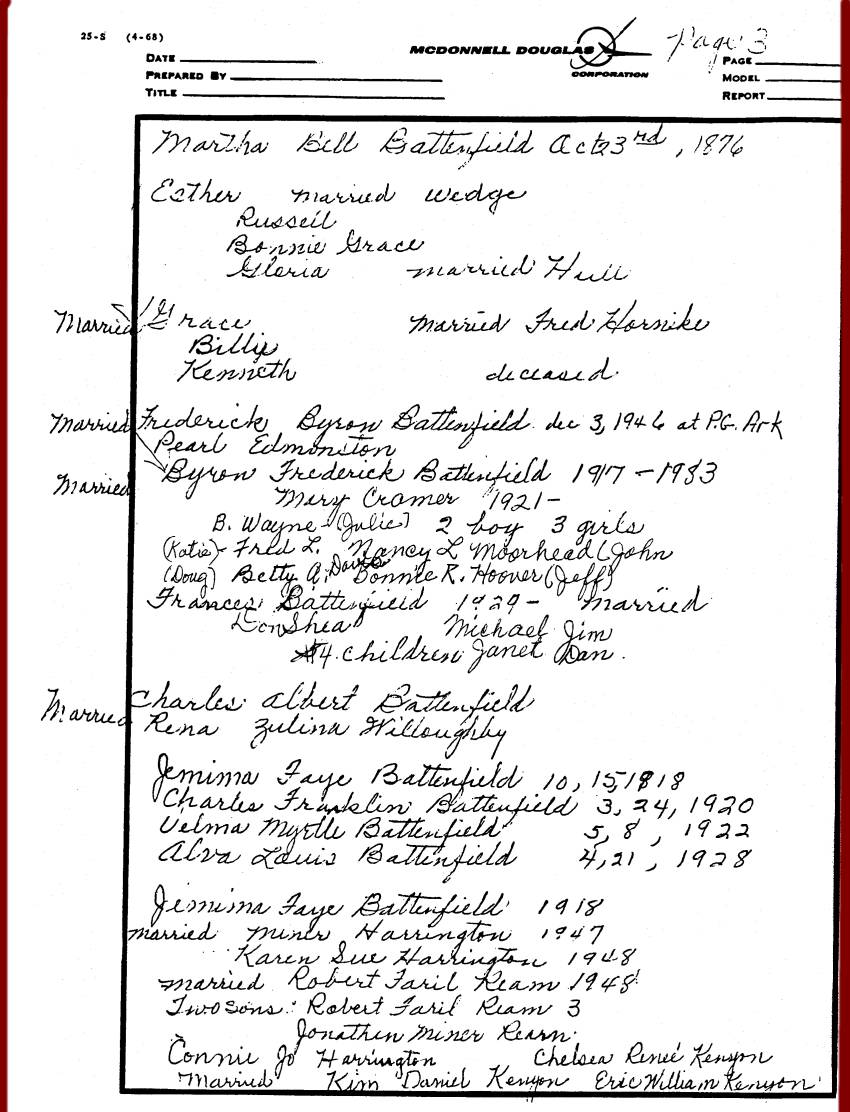 25-S (4-68)
MCDONNELL DOUGLAS
CORPORATION
Page 3
DATE
PREPARED BY
TITLE
PAGE
MODEL
REPORT
Martha Bell Battenfield Oct 23rd, 1876
Esther married Wedge
Russell
Bonnie Grace
Gloria married Hull
Married Grace married Fred Hornike
Billy
Kenneth deceased
Married Frederick Byron Battenfield dec 3, 1946 at P.G. Ark
Pearl Edmonston
Married Byron Frederick Battenfield 1917 - 1983
Mary Cramer 1921-
B. Wayne - (Julie) 2 boy 3 girls
(Katie) - Fred L. Nancy L Moorhead (John
(Doug) Betty A. Davis Bonnie R. Hoover (Jeff)
Frances Battenfield 1929 - married
Don Shea Michael Jim
4 children Janet Dan.
Charles Albert Battenfield
Married Rena Zulina Willoughby
Jemima Faye Battenfield 10, 15, 1918
Charles Franklin Battenfield 3, 24, 1920
Velma Myrtle Battenfield 5, 8, 1922
Alva Louis Battenfield 4, 21, 1928
Jemima Faye Battenfield 1918
married Miner Harrington 1947
Karen Sue Harrington 1948
married Robert Faril Ream 1948
Two sons: Robert Faril Ream 3
Jonathen Miner Ream.
Connie Jo Harrington Chelsea Reneé Kenyon
Married Kim Daniel Kenyon Eric William Kenyon